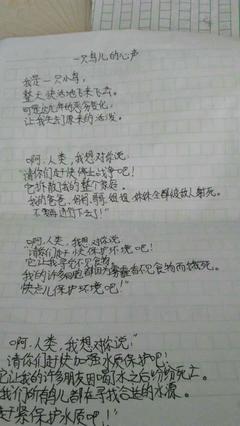 一只鸟儿的心声
我是一只小鸟,
整天快活地飞来飞去。
可是近几年的恶劣变化,
让我失去了原来的活泼。
“啊,人类,我想对你说:
请你们赶快停止战争吧!
它拆散了我的整个家庭。
我的爸爸、妈妈、哥哥、姐姐、妹妹全都被敌人射死。
不要再进行下去了!”
“啊,人类,我想对你说:
请你们赶快保护环境吧!
它让我寻找不见食物。
我的许多同胞都因为寻找不见食物而饿死。
快点儿保护环境吧!”
“啊,人类,我想对你说:
请你们赶快加强水质保护吧!
它让我的许多朋友因喝水之后纷纷死亡。
我们所有鸟儿都在寻找合适的水源。
赶紧保护水质吧!”